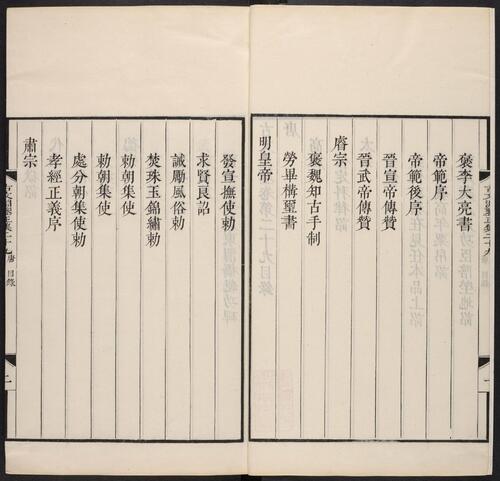 褒李大亮書
帝範序
帝範後序
晉宣帝傳贊
晉武帝傳贊
睿宗
褒魏知古手制
勞畢構璽書
明皇帝
發宣撫使勅
求賢良詔
誡勵風俗勅
焚珠玉錦繡勅
勅朝集使
勅朝集使
處分朝集使勅
孝經正義序
肅宗
二十九
唐 目錄
二